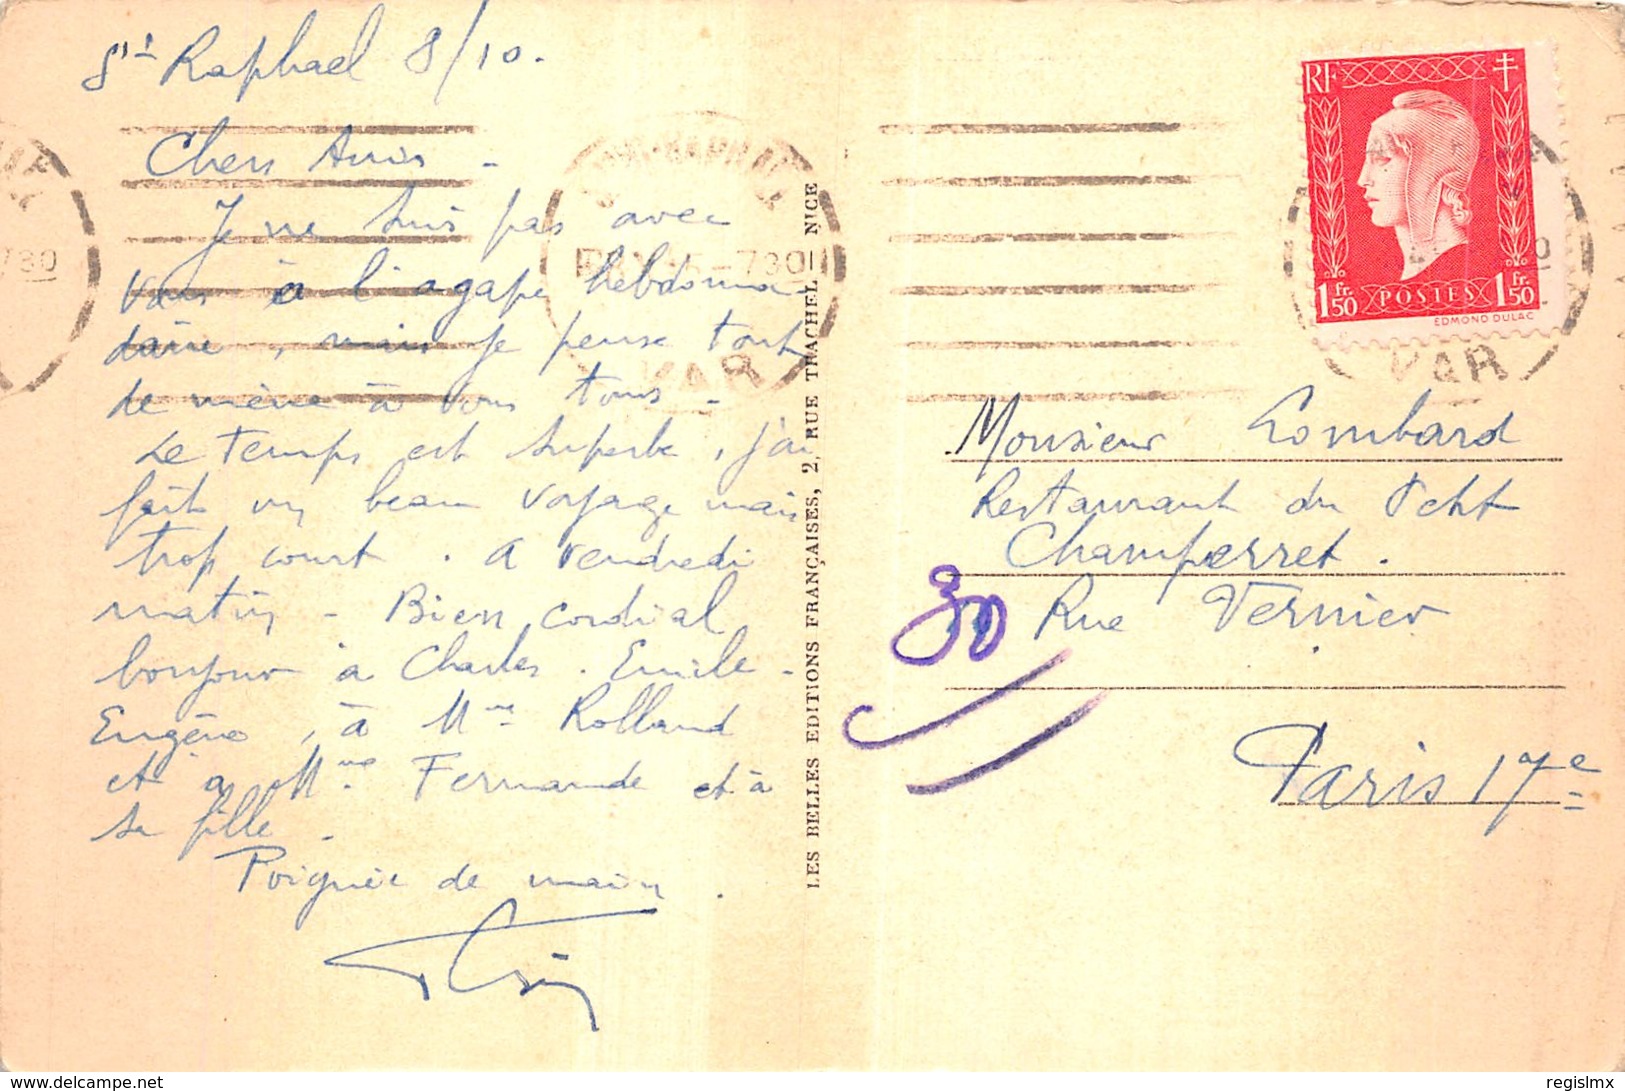 St Raphael 8/10.
Chers Amis -
Je ne suis pas avec
vous à l'agape hebdoma-
daire, mais je pense tout
de même à vous tous -
Le temps est superbe, j'ai
fait un beau voyage mais
trop court. A vendredi
matin - Bien cordial
bonjour à Charles. Emile -
Eugène, à Mme Rolland
et à Mme Fernande et à
sa fille -
Poignée de main.
LES BELLES EDITIONS FRANÇAISES, 2, RUE TRACHEL - NICE
VAR
730
RF
1 Fr. 50 POSTES 1 Fr. 50
EDMOND DULAC
VAR
Monsieur Lombard
Restaurant du Petit
Champerret.
30 Rue Vernier
Paris 17e
regislmx